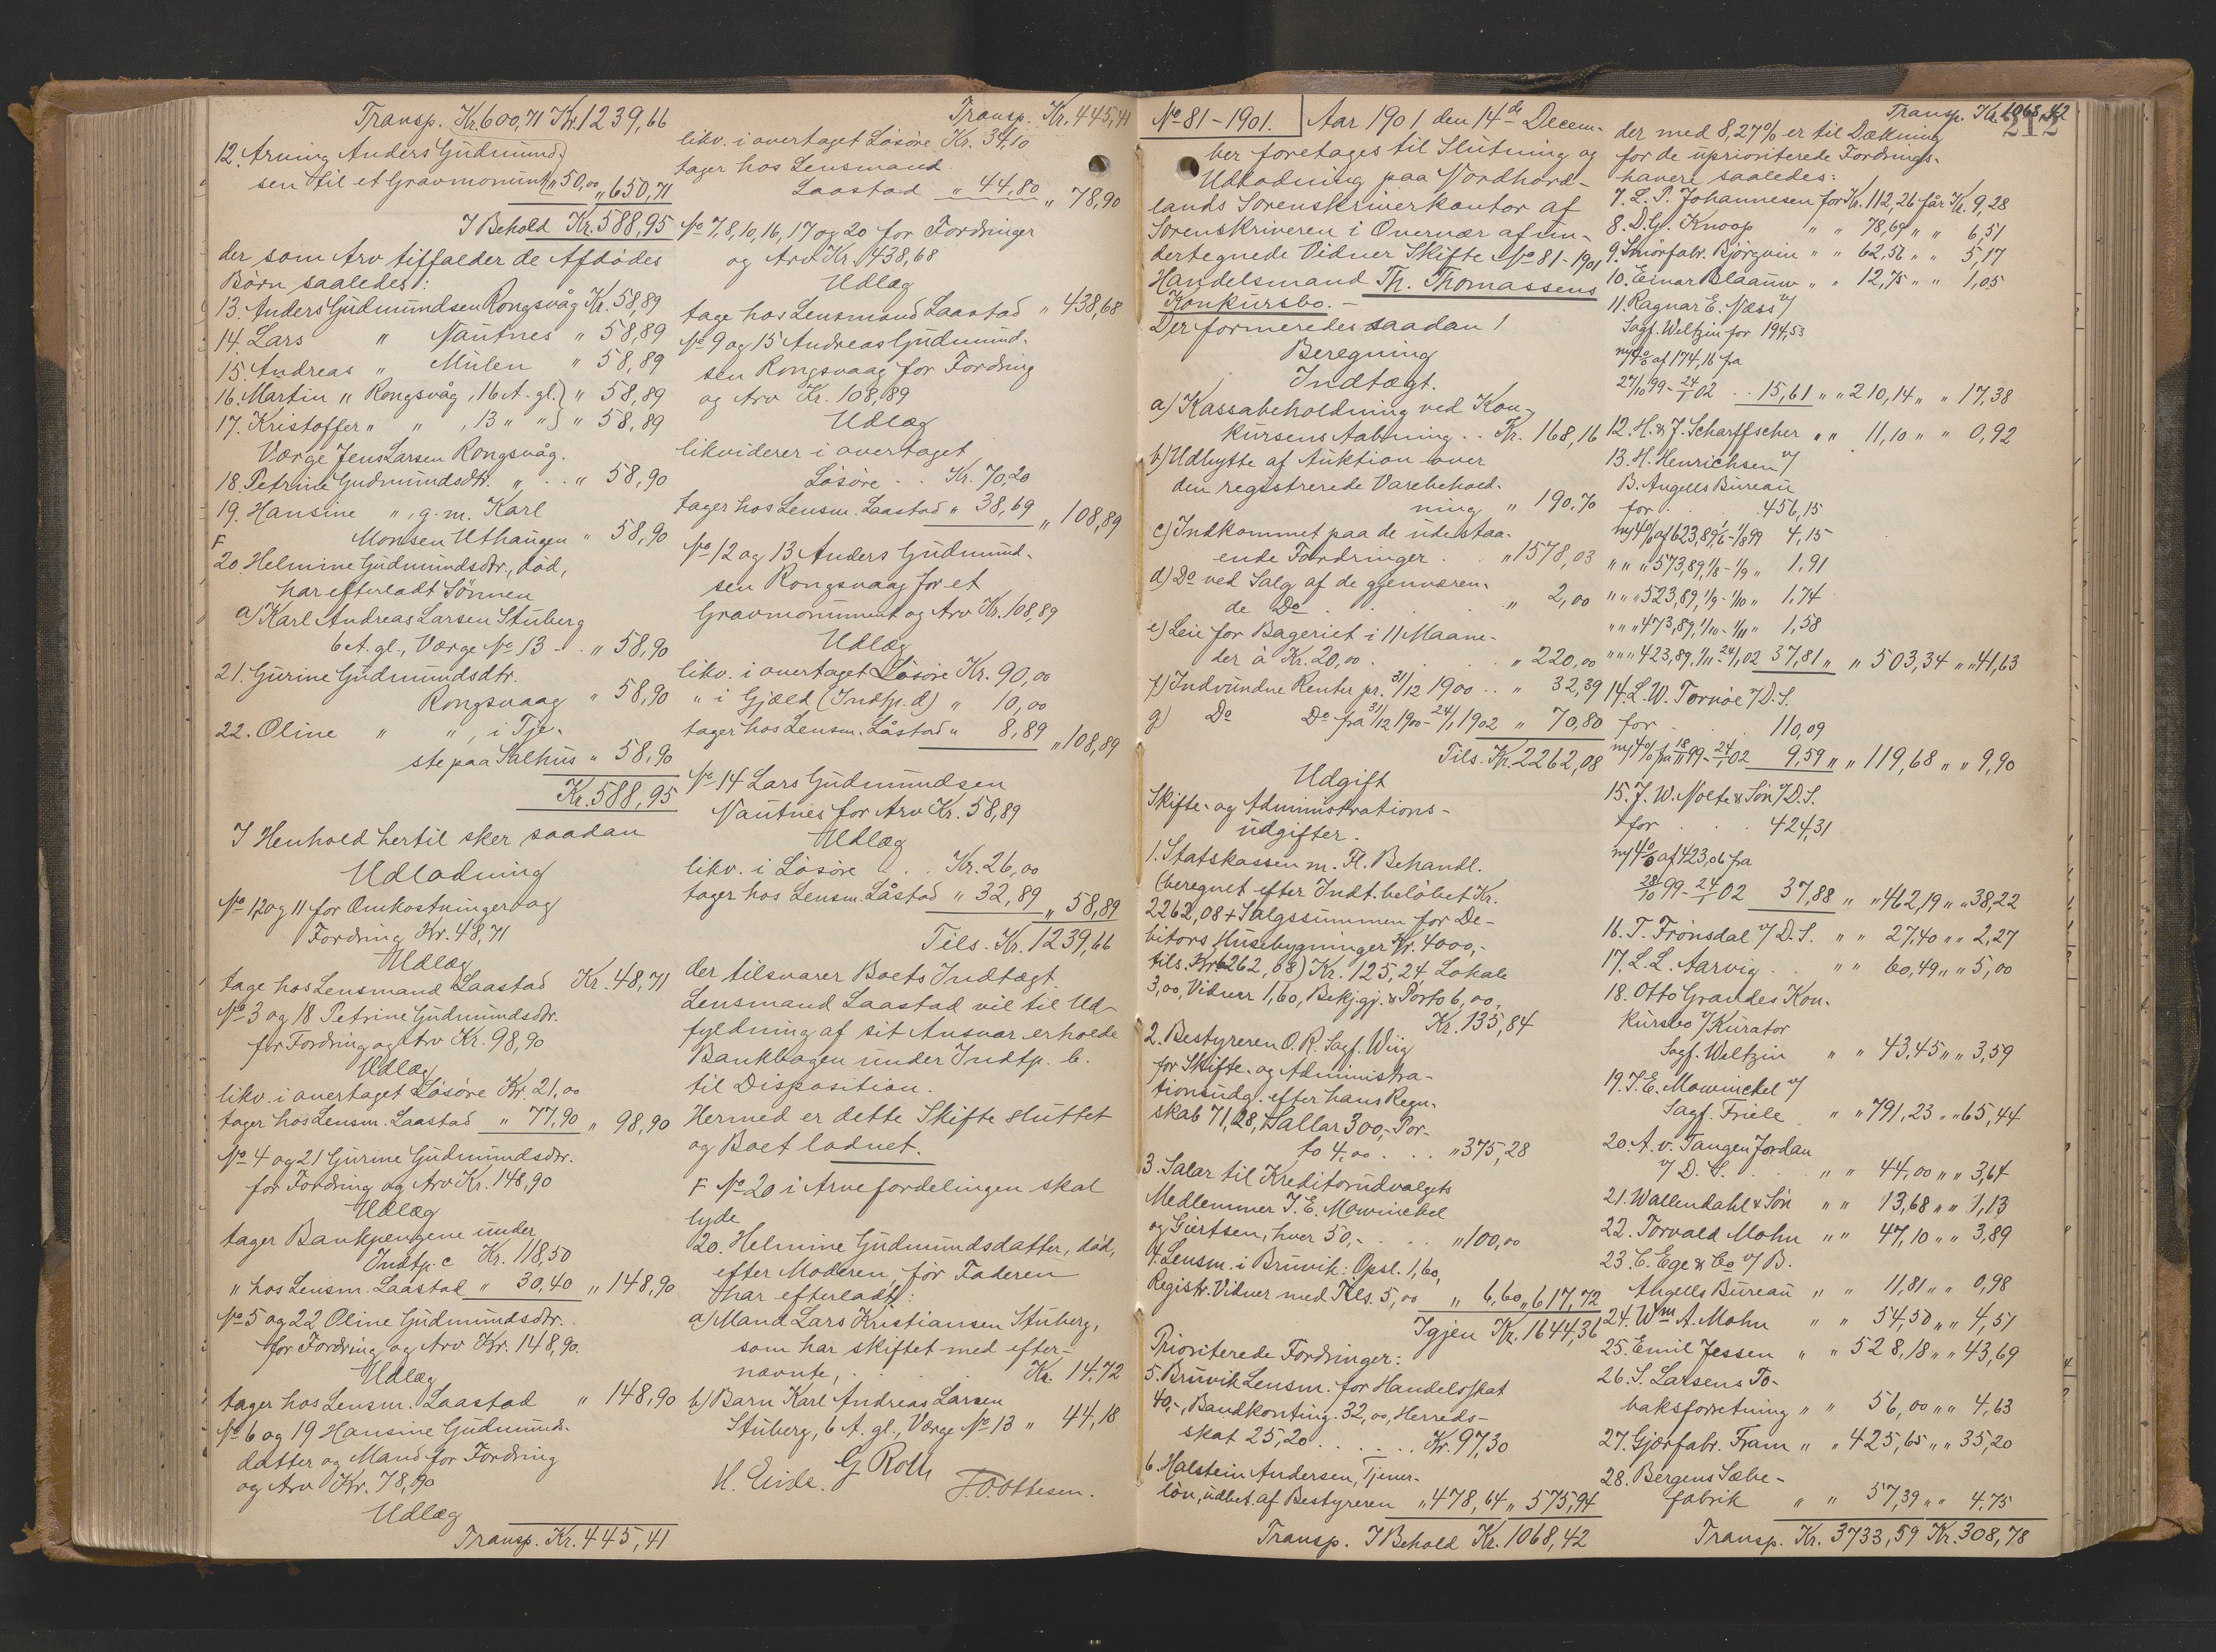 Transp. Kr. 600,71 Kr. 1239,66
12. Arving Anders Gudmund-
sen til et Gravmonument " 50,00 " 650,71
I Behold Kr. 588,95
der som Arv tilfalder de Afdødes
Børn saaledes:
13. Anders Gudmundsen Rongsvåg Kr. 58,89
14. Lars " Nautnes " 58,89
15. Andreas " Mulen " 58,89
16. Martin " Rongsvåg, 16 A. gl. } " 58,89
17. Kristoffer " " , 13 " " } " 58,89
Værge Jens Larsen Rongsvåg.
18. Petrine Gudmundsdtr. " . . " 58,90
19. Hansine " , g. m. Karl
Monsen Uthaugen " 58,90
F
20. Helmine Gudmundsdtr., død,
har efterladt Sønnen
a) Karl Andreas Larsen Stuberg
6 A. gl., Værge No 13 . . " 58,90
21. Gurine Gudmundsdtr.
Rongsvaag " 58,90
22. Oline " " , i Tje-
ste paa Salhus " 58,90
Kr. 588,95
I Henhold hertil sker saadan
Udlodning
No 1, 2 og 11 for Omkostninger og
Fordring Kr. 48,71
Udlæg
tage hos Lensmand Laastad Kr. 48,71
No 3 og 18 Petrine Gudmundsdtr.
for Fordring og Arv Kr. 98,90
Udlæg
likv. i overtaget Løsøre Kr. 21,00
tager hos Lensm. Laastad " 77,90 " 98,90
No 4 og 21 Gurine Gudmundsdtr.
for Fordring og Arv Kr. 148,90
Udlæg
tager Bankpengene under
Indtp. c Kr. 118,50
" hos Lensm. Laastad " 30,40 " 148,90
No 5 og 22 Oline Gudmundsdtr.
for Fordring og Arv Kr. 148,90.
Udlæg
tager hos Lensm. Laastad " 148,90
No 6 og 19 Hansine Gudmunds-
datter og Mand for Fordring
og Arv Kr. 78,90
Udlæg
Transp. Kr. 445,41
Transp. Kr. 445,41
likv. i overtaget Løsøre Kr. 34,10
tager hos Lensmand
Laastad " 44,80 " 78,90
No 7, 8, 10, 16, 17 og 20 for Fordringer
og Arv Kr. 438,68
Udlæg
tage hos Lensmand Laastad " 438,68
No 9 og 15 Andreas Gudmund-
sen Rongsvaag for Fordring
og Arv Kr. 108,89
Udlæg
likviderer i overtaget
Løsøre . . Kr. 70,20
tager hos Lensm. Laastad " 38,69 " 108,89
No 12 og 13 Anders Gudmund-
sen Rongsvaag for et
Gravmonument og Arv Kr. 108,89
Udlæg
likv. i overtaget Løsøre Kr. 90,00
" i Gjæld (Indtp. d) " 10,00
tager hos Lensm. Låstad " 8,89 " 108,89
No 14 Lars Gudmundsen
Nautnes for Arv Kr. 58,89
Udlæg
likv. i Løsøre . . . Kr. 26,00
tager hos Lensm. Låstad " 32,89 " 58,89
Tils. Kr. 1239,66
der tilsvarer Boets Indtægt.
Lensmand Laastad vil til Ud-
fyldning af sit Ansvar erholde
Bankbogen under Indtp. b.
til Disposition.
Hermed er dette Skifte sluttet
og Boet lodnet.
F No 20 i Arvefordelingen skal
lyde
20. Helmine Gudmundsdatter, død,
efter Moderen, før Faderen
har efterladt:
a) Mand Lars Kristiansen Stuberg,
som har skiftet med efter-
nævnte, . . . . Kr. 14,72
b) Barn Karl Andreas Larsen
Stuberg, 6 A. gl., Værge No 13 " 44,18
G Roll
No 81 - 1901. Aar 1901 den 14de Decem-
ber foretoges til Slutning og
Udlodning paa Nordhord-
lands Sorenskriverkontor af
Sorenskriveren i Overvær af un-
dertegnede Vidner Skifte No 81 - 1901
Handelsmand Th. Thomassens
Konkursbo. -
Der formeredes saadan!
Beregning
Indtægt.
a) Kassabeholdning ved Kon-
kursens Aabning . . Kr. 168,16
b) Udbytte af Auktion over
den registrerede Varebehold-
ning " 190,70
c) Indkommet paa de udestaa-
ende Fordringer . . " 1578,03
d) Do ved Salg af de gjenværen-
de Do . . . . " 2,00
e) Leie for Bageriet i 11 Maane-
der à Kr. 20,00 . . . . " 220,00
f) Indvundne Renter pr. 31/12 1900 . . " 32,39
g) Do Do fra 31/12 1900 - 24/1 1902 " 70,80
Tils. Kr. 2262,08
Udgift
Skifte- og Administrations-
udgifter.
1. Statskassen m. Fl. Behandl.
(beregnet efter Indt. beløbet Kr.
2262,08 + Salgssummen for De-
bitors Husebygninger Kr. 4000,-
tils. Kr. 6262,08) Kr. 125,24, Lokale
3,00, Vidner 1,60, Bekj. gj. & Porto 6,00,
Kr. 135,84
2. Bestyreren O. R. Sagf. Wiig
for Skifte- og Administra-
tionsudg. efter hans Regn-
skab 71,28, Sallar 300,- Por-
to 4,00 . . . " 375,28
3. Salar til Kreditorudvalgets
Medlemmer J. E. Mowinckel
og Giertsen, hver 50,- . . . " 100,00
4. Lensm. i Bruvik: Opsl. 1,60,
Registr. Vidner med Tils. 5,00 " 6,60 " 617,72
Igjen Kr. 1644,36
Prioriterede Fordringer:
5. Bruvik Lensm. for Handelsskat
40,-, Bandkonting. 32,00, Herreds-
skat 25,20 . . . . . . Kr. 97,30
6. Halstein Andersen, Tjener-
løn, udbet. af Bestyreren " 478,64 " 575,94
Transp. I Behold Kr. 1068,42
Transp. Kr. 1068,42
212
der med 8,27% er til Dækning
for de uprioriterede Fordrings-
havere saaledes:
7. L. P. Johannesen for Kr. 112,26 får Kr. 9,28
8. D. G. Knoop " " 78,69 " " 6,51
9. Smörfabr. Bjørgvin " " 62,56 " " 5,17
10. Einar Blaauw " " 12,75 " " 1,05
11. Ragnar E. Næss v/
Sagf. Weltzin for 194,53
m/4% af 174,16 fra
27/10 99 - 24/1 02 . . 15,61 " " 210,14 " " 17,38
12. H. & J. Scharffscher " " 11,10 " " 0,92
13. H. Henrichsen v/
B. Angells Bureau
for . . . 456,15
m/4% af 623,89 1/6 - 1/8 99 4,15
" " " 573,89, 1/8 - 1/9 " 1,91
" " " 523,89, 1/9 - 1/10 " 1,74
" " " 473,89, 1/10 - 1/11 " 1,58
" " " 423,89, 1/11 - 24/1 02 37,81 " " 503,34 " " 41,63
14. L. W. Tornöe v/ D. S.
for . . . 110,09
m/4% fra 18/11 99 - 24/1 02 9,59 " " 119,68 " " 9,90
15. J. W. Nolte & Søn v/ D. S.
for . . . 424,31
m/4% af 423,06 fra
28/10 99 - 24/1 02 37,88 " " 462,19 " " 38,22
16. T. Frönsdal v/ D. S. " " 27,40 " " 2,27
17. L. L. Aarvig . . " " 60,49 " " 5,00
18. Otto Grandes Kon-
kursbo v/ Kurator
Sagf. Weltzin " " 43,45 " " 3,59
19. J. E. Mowinckel v/
Sagf. Friele " " 791,23 " " 65,44
20. A. v. Tangen Jordan
v/ D. S. . . " " 44,00 " " 3,64
21. Wallendahl & Søn " " 13,68 " " 1,13
22. Torvald Mohn " " 47,10 " " 3,89
23. C. Ege & Co v/ B.
Angells Bureau " " 11,81 " " 0,98
24. Wm A. Mohn " " 54,50 " " 4,51
25. Emil Jessen " " 528,18 " " 43,69
26. S. Larsens To-
baksforretning " " 56,00 " " 4,63
27. Gjærfabr. Fram " " 425,65 " " 35,20
28. Bergens Sæbe-
fabrik " " 57,39 " " 4,75
Transp. Kr. 3733,59 Kr. 308,78